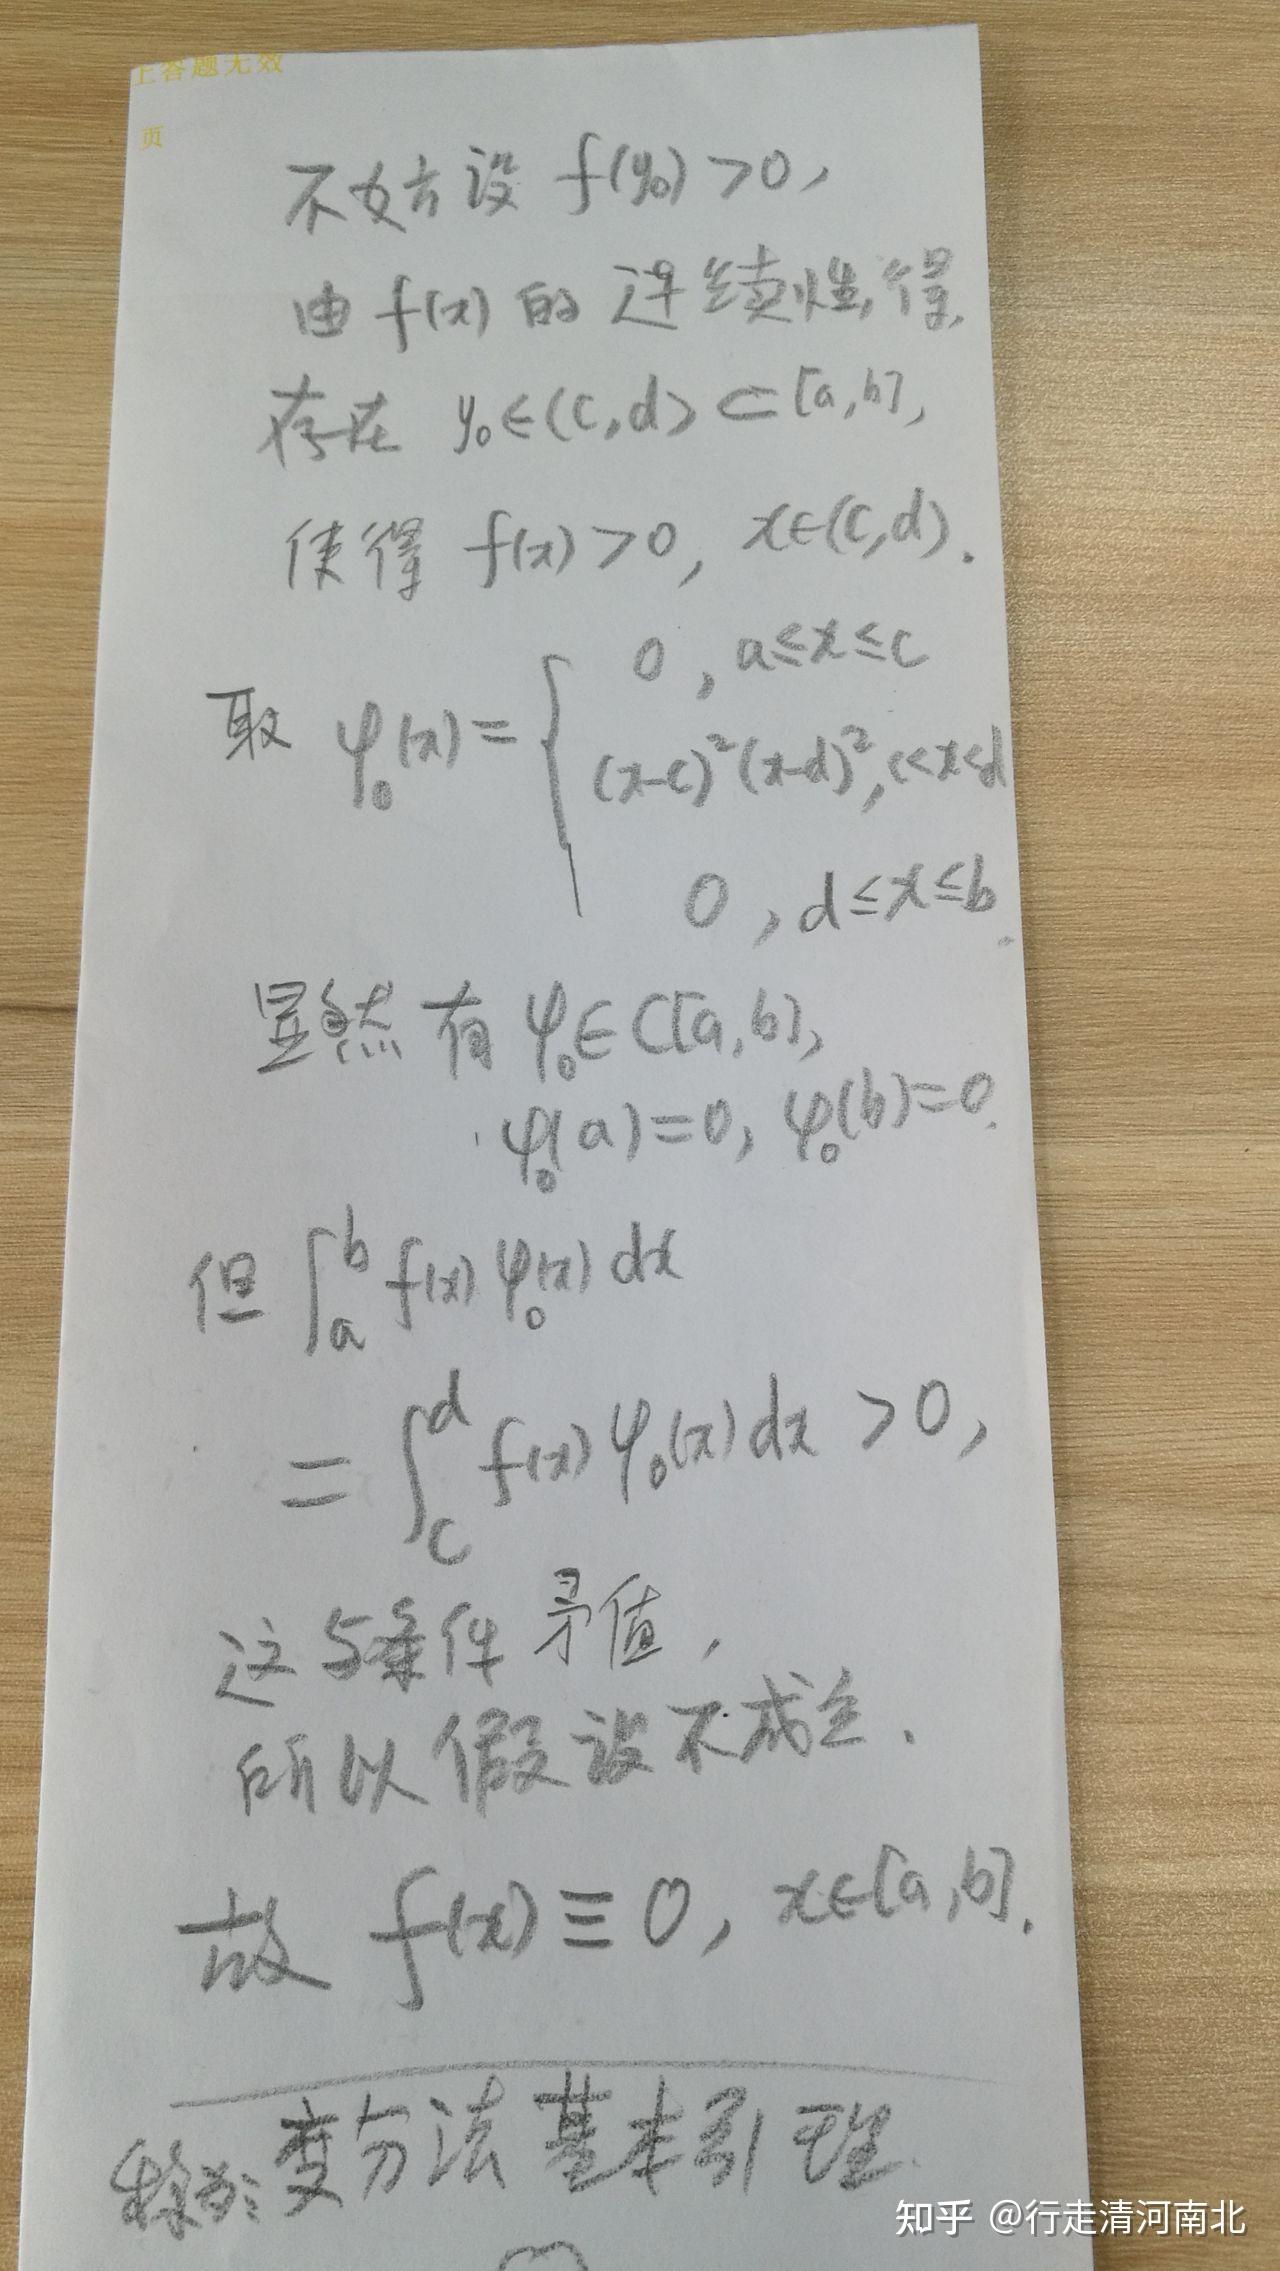 上答题无效
页
不妨设 f(y₀) >0,
由 f(x) 的连续性,得,
存在 y₀∈(c,d) ⊂[a,b],
使得 f(x) >0, x∈(c,d).
取 φ₀(x) = { 0, a≤x≤c
(x-c)²(x-d)², c<x<d
0, d≤x≤b.
显然有 φ₀∈C[a,b],
φ₀(a)=0, φ₀(b)=0.
但 ∫ₐᵇ f(x) φ₀(x) dx
= ∫_c^d f(x) φ₀(x) dx >0,
这与条件矛盾,
所以假设不成立.
故 f(x)≡0, x∈[a,b].
称为:变分法基本引理
知乎 @行走清河南北